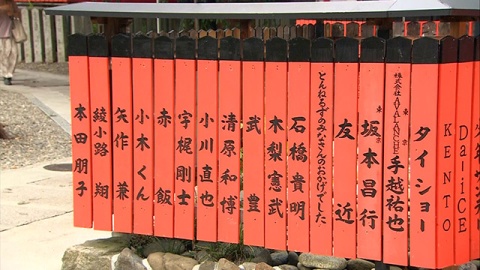 Da-iCE
KENTO
タイショー
株式会社AVALANCHE 手越祐也
坂本昌行
友近
とんねるずのみなさんのおかげでした
石橋貴明
木梨憲武
武豊
清原和博
小川直也
宇梶剛士
赤飯
小木くん
矢作兼
綾小路翔
本田朋子